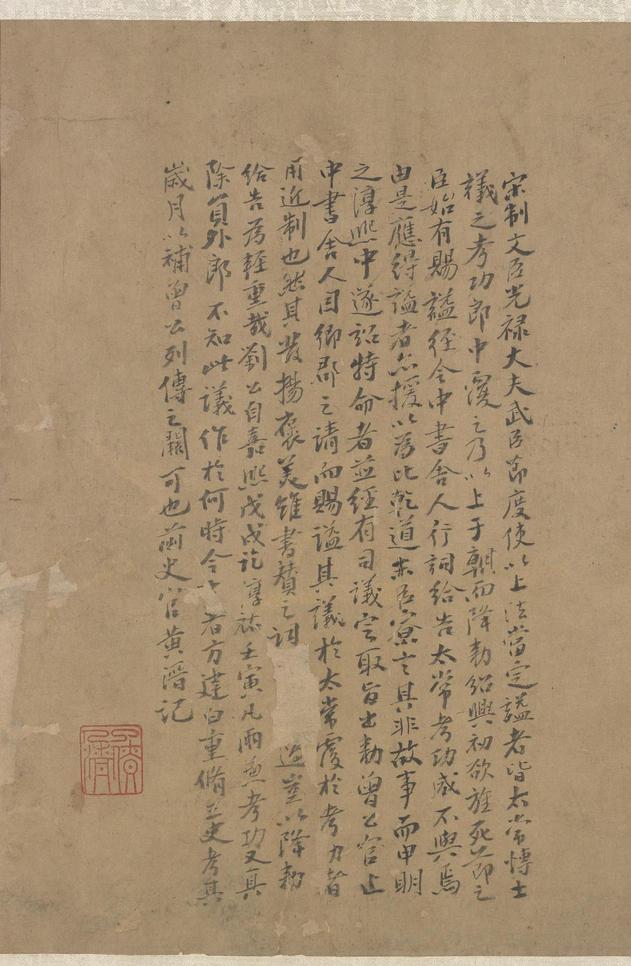 宋制文臣光禄大夫武臣節度使以上法當定諡者皆太常博士
議之考功郎中覆之乃以上于朝而降勅紹興初欲旌死節之
臣始有賜諡徑令中書舍人行詞給告太常考功咸不與焉
由是應得諡者亦援以為比乾道末臣寮言其非故事而申明
之淳熙中遂詔特命者並經有司議定取旨出勅曾公官止
中書舍人因鄉郡之請而賜諡其議於太常覆於考功者
用近制也然其發揚褒美雖書贊之詞 豈以降勅
給告為輕重哉劉公自嘉熙戊戌訖淳祐壬寅凡兩兼考功又真
除員外郎不知此議作於何時今 者方建白重脩 史考其
歲月以補曾公列傳之闕可也前史官黃溍記